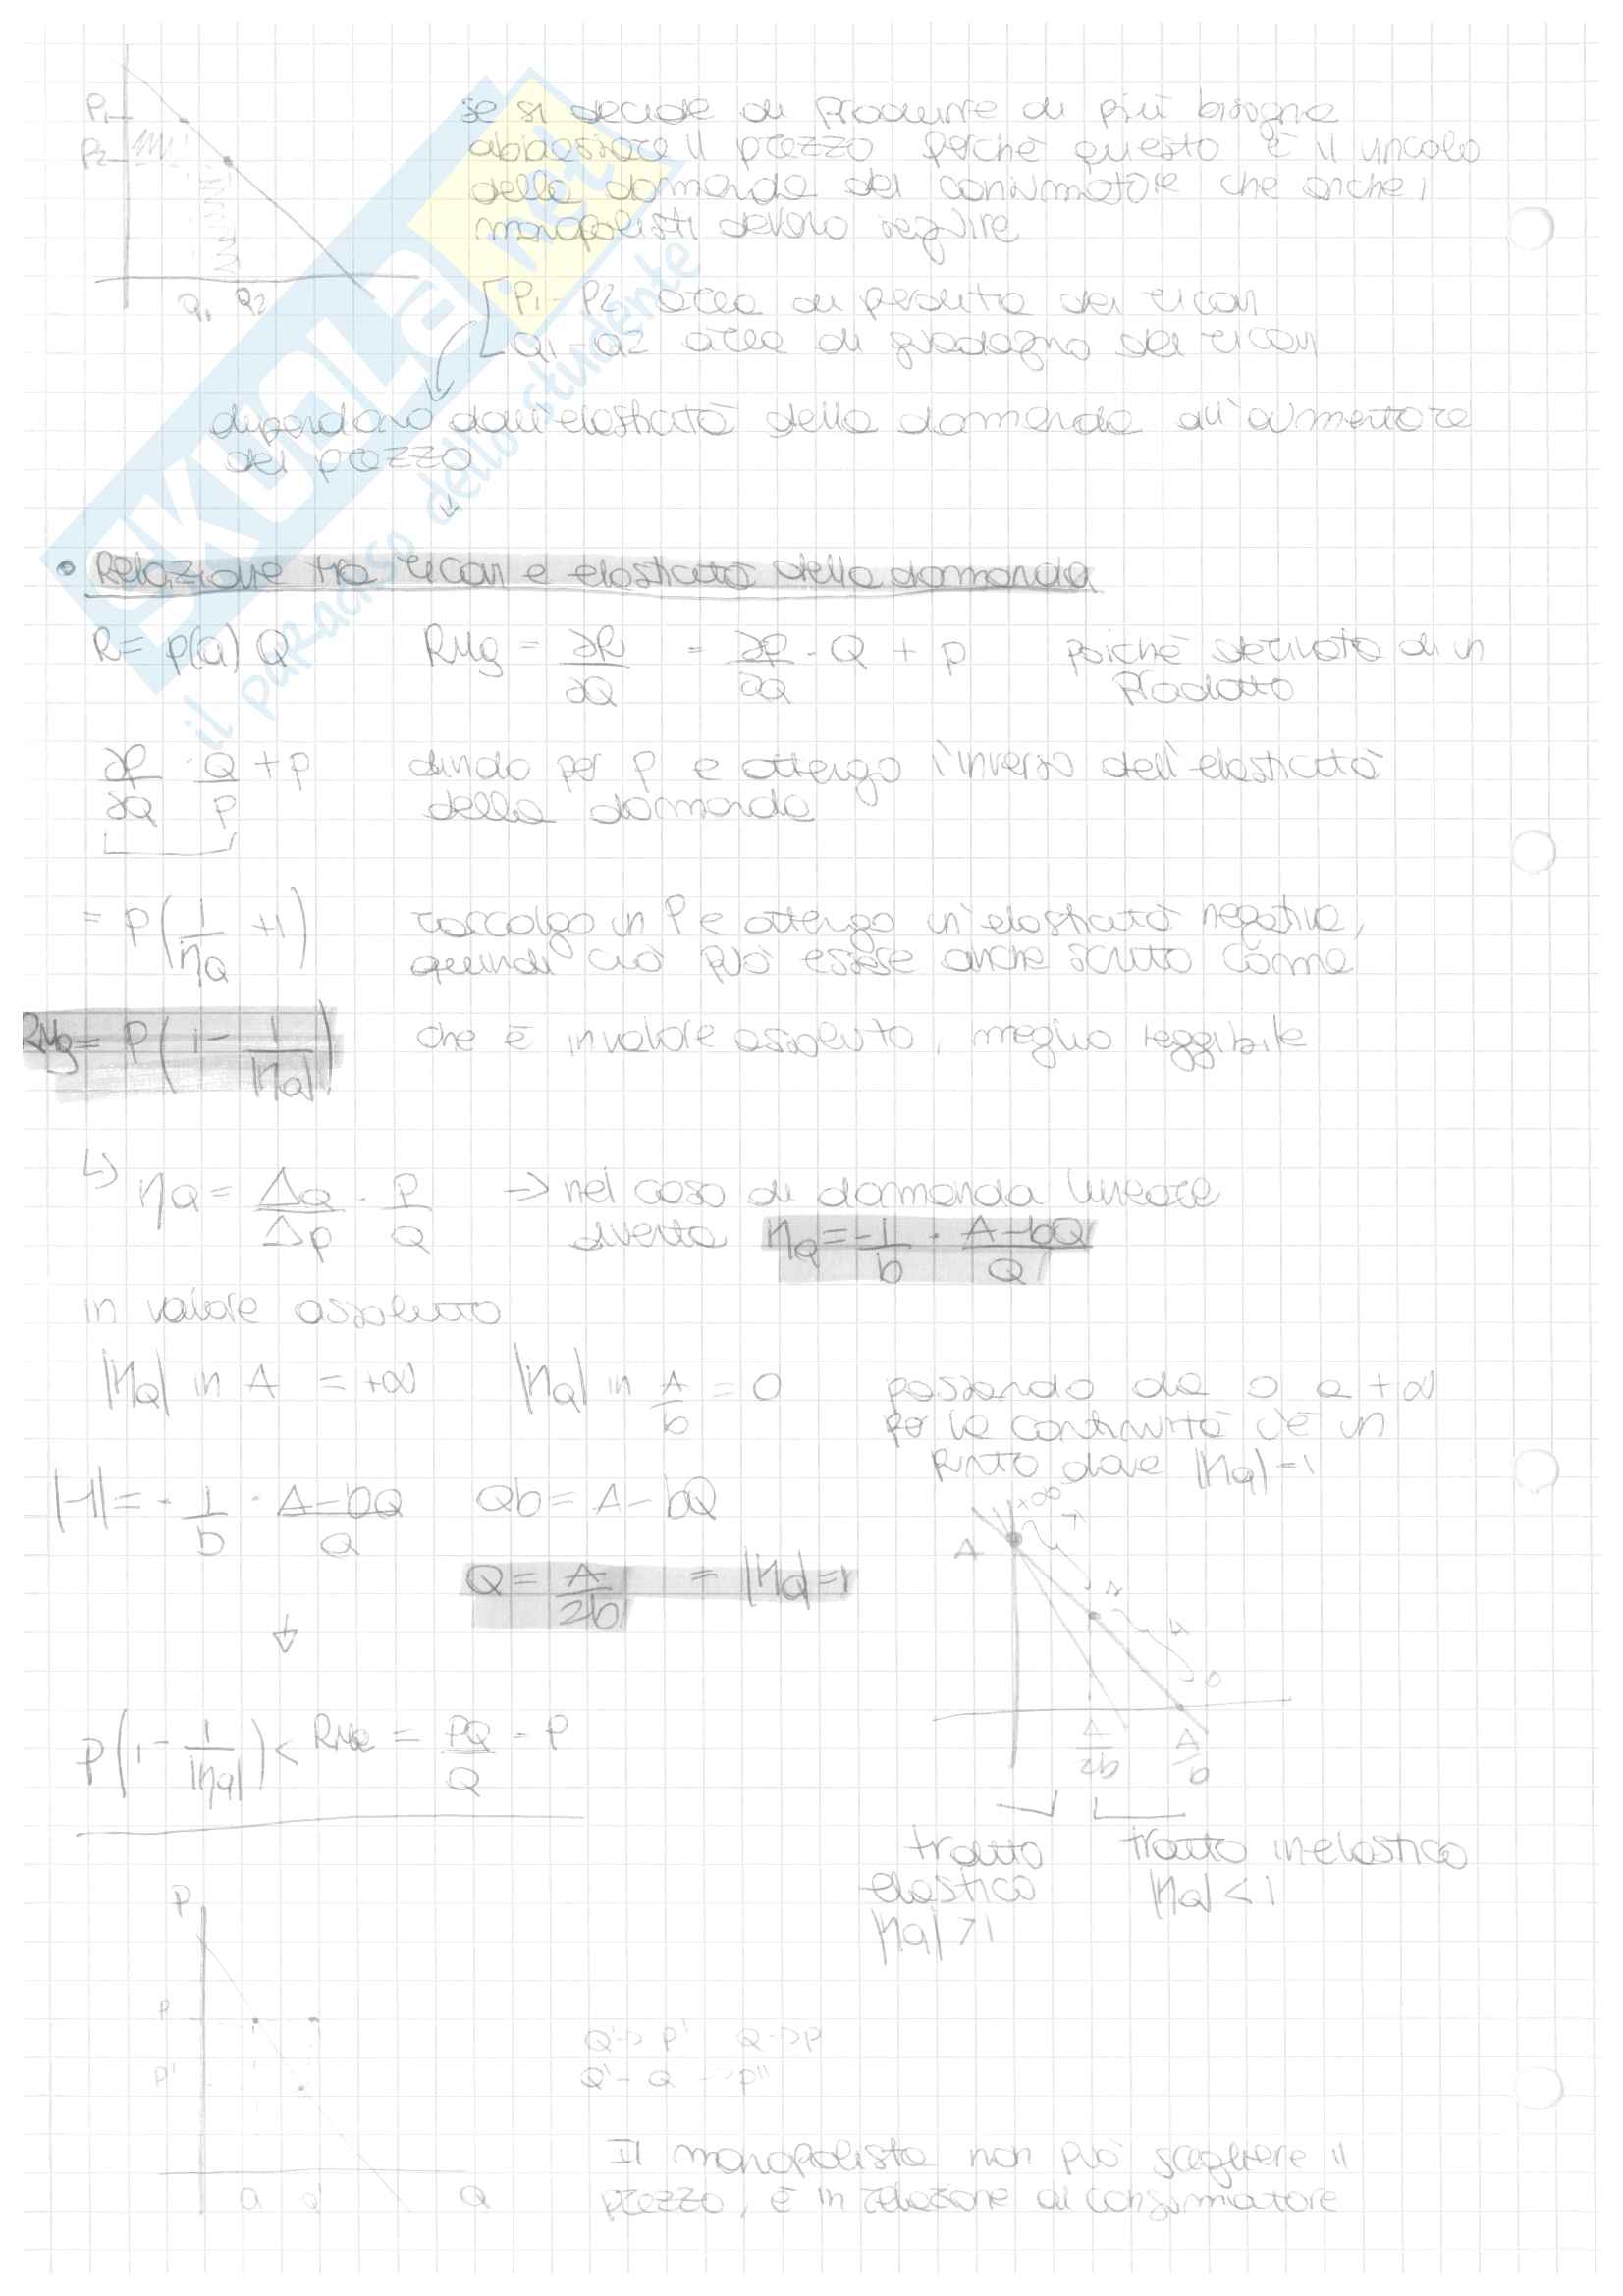 P1
P2
Q1 Q2
se si decide di produrre di più bisogna
abbassare il prezzo perchè questo è il vincolo
della domanda del consumatore che anche i
monopolisti devono seguire
P1 - P2 area di perdita dei ricavi
Q1 - Q2 area di guadagno dei ricavi
dipendono dall'elasticità della domanda all'aumentare
del prezzo
SKUOLA.net
il paradiso dello studente
• Relazione tra ricavi e elasticità della domanda
R = p(Q) Q RMg = ∂R/∂Q = ∂P/∂Q · Q + p poichè derivata di un
prodotto
∂P/∂Q · Q/P + p divido per p e ottengo l'inverso dell'elasticità
della domanda
= P(1/ηQ + 1) raccolgo in P e ottengo un'elasticità negativa,
quindi ciò può essere anche scritto come
RMg = P(1 - 1/|ηQ|) che è in valore assoluto, meglio leggibile
↳ ηQ = ΔQ/Δp · P/Q → nel caso di domanda lineare
diventa ηQ = -1/b · A-bQ/Q
in valore assoluto
|ηQ| in A = +∞ |ηQ| in A/b = 0 passando da 0 a +∞
per la continuità c'è un
punto dove |ηQ| = 1
|-1| = -1/b · A-bQ/Q Qb = A - bQ
Q = A/2b = |ηQ| = 1
+∞
A
0
A/2b A/b
P(1 - 1/|ηQ|) < RMe = PQ/Q = P
tratto tratto inelastico
elastico |ηQ| < 1
|ηQ| > 1
P
P
P'
Q Q' Q
Q' → P' Q → P
Q' - Q → P''
Il monopolista non può scegliere il
prezzo, è in relazione al consumatore